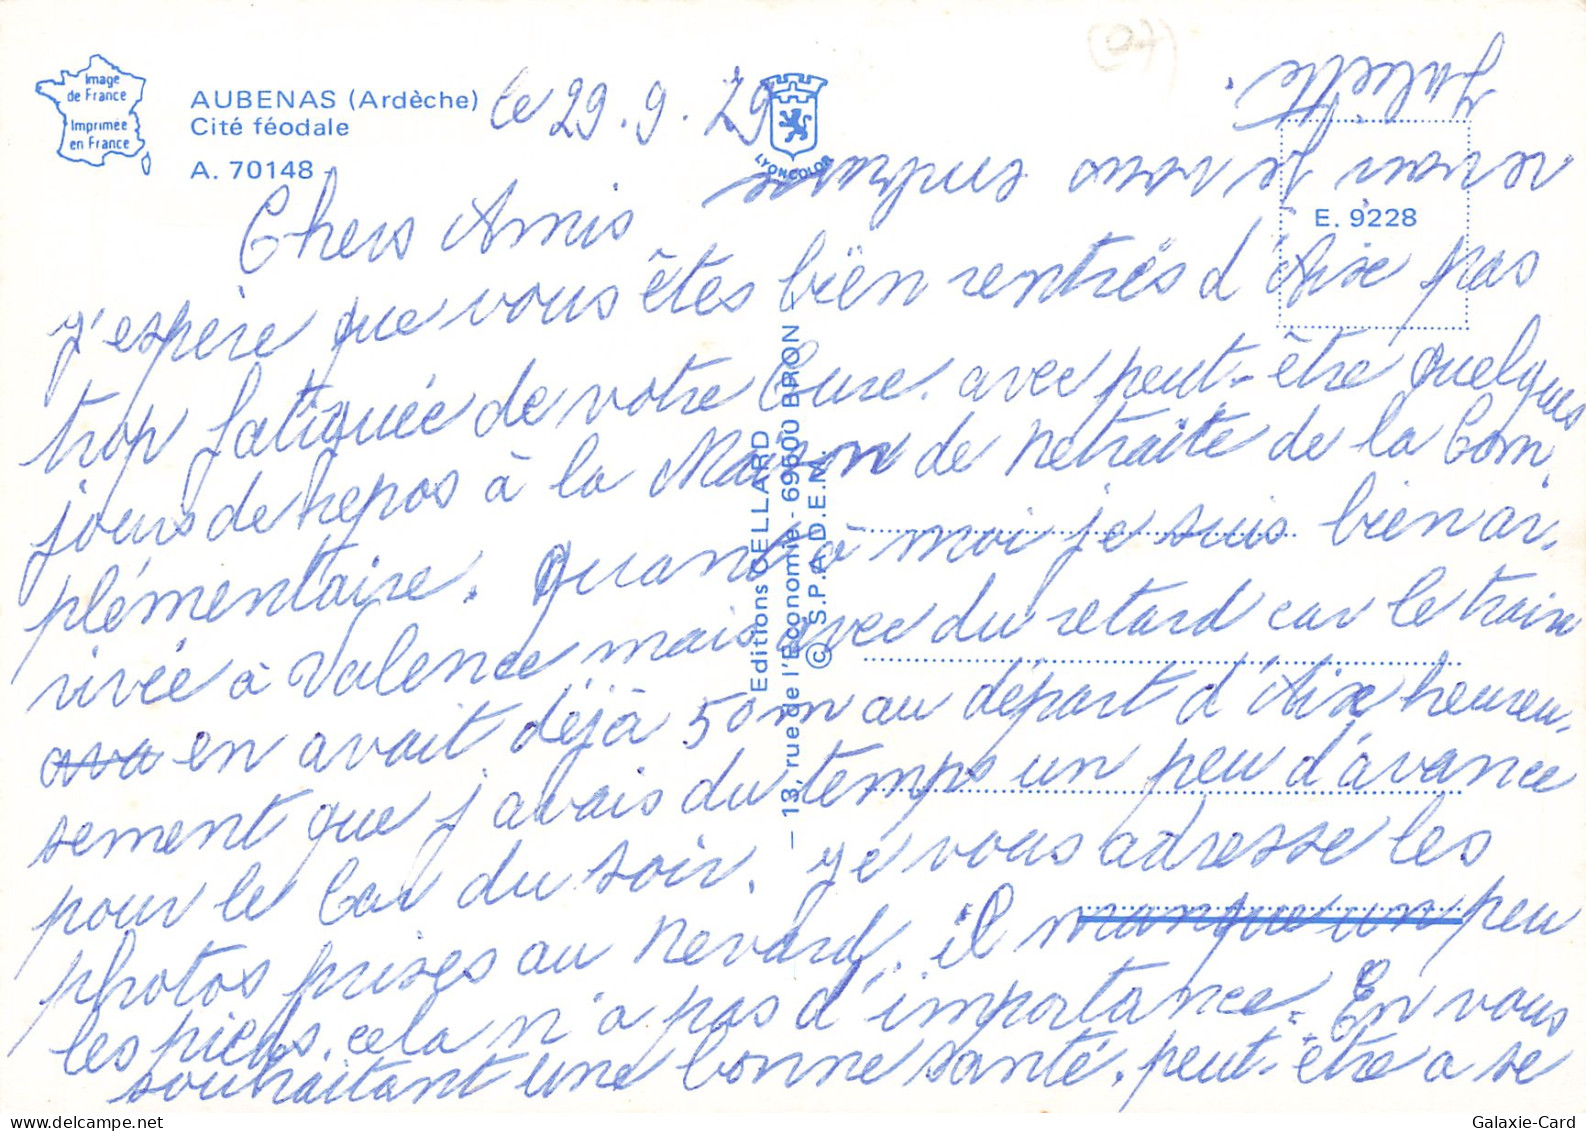 Image
de France
Imprimée
en France
AUBENAS (Ardèche)
Cité féodale
A. 70148
le 29.9.79
LYONCOLOR
(07)
E. 9228
Editions CELLARD
— 13, rue de l'Economie - 69500 BRON —
© S.P.A.D.E.M.
Chers Amis
j'espère que vous êtes bien rentrés d'Aix pas
trop fatiguée de votre Cure. avec peut-être quelques
jours de repos à la Maison de Retraite de la Com
plémentaire. Quant à moi je suis bien ar.
rivée à Valence mais avec du retard car le train
ava en avait déjà 50m au départ d'Aix heureu.
sement que j'avais du temps un peu d'avance
pour le Car du soir. je vous adresse les
photos prises au Revard, il manque un peu
les pieds, cela n'a pas d'importance. En vous
souhaitant une bonne santé. peut-être a se
revoir je vous embrasse
Juliette.
Galaxie-Card